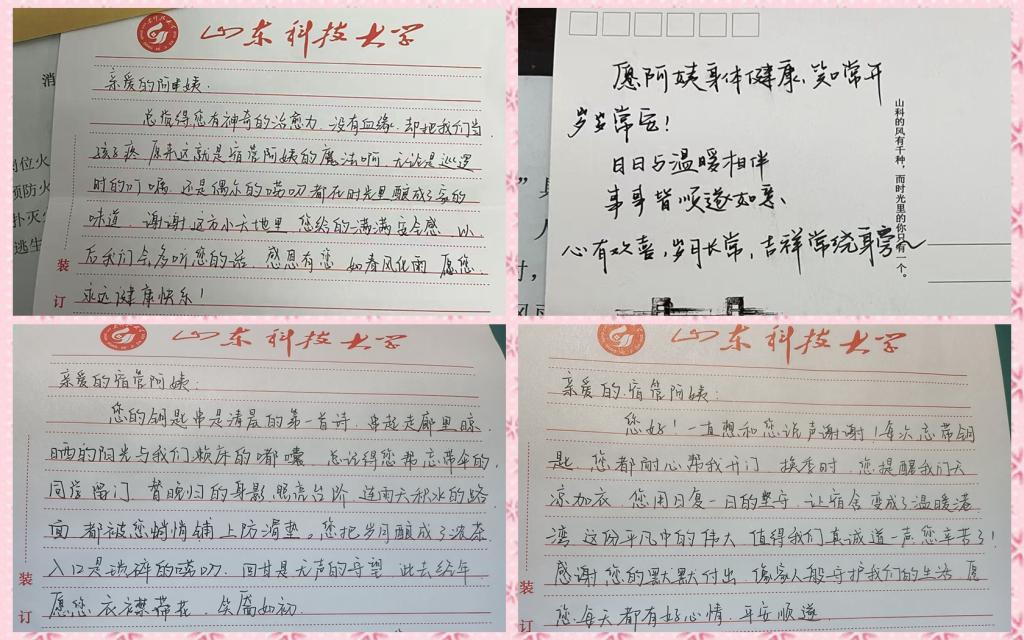 山东科技大学
亲爱的阿姨:
总觉得您有神奇的治愈力,没有血缘,却把我们当
孩子疼,原来这就是宿管阿姨的魔法啊,无论是巡逻
时的叮嘱,还是偶尔的唠叨都在时光里酿成了家的
味道,谢谢这方小天地里,您给的满满安全感,以
后我们会多听您的话,感恩有您,如春风化雨,愿您
永远健康快乐!
装
订
消
岗位火
预防火
扑灭
逃生
愿阿姨身体健康,笑口常开
岁岁常宝!
日日与温暖相伴
事事皆顺遂如意、
心有欢喜,岁月长常,吉祥常绕身旁~
山科的风有千种,而时光里的你只有一个。
山东科技大学
亲爱的宿管阿姨:
您的钥匙串是清晨的第一首诗,串起走廊里晾
晒的阳光与我们赖床的嘟囔,总记得您帮忘带伞的
同学留门,替晚归的身影照亮台阶,连雨天积水的路
面都被您悄悄铺上防滑垫。您把岁月酿成了浓茶
入口是琐碎的唠叨,回甘是无声的守望,此去经年
愿您衣襟带花,笑靥如初.
装
订
山东科技大学
亲爱的宿管阿姨:
您好!一直想和您说声谢谢!每次忘带钥
匙,您都耐心帮我开门,换季时,您提醒我们天
凉加衣,您用日复一日的坚守,让宿舍变成了温暖港
湾,这份平凡中的伟大,值得我们真诚道一声,您辛苦了!
感谢您的默默付出,像家人般守护我们的生活,愿
您每天都有好心情,平安顺遂
装
订